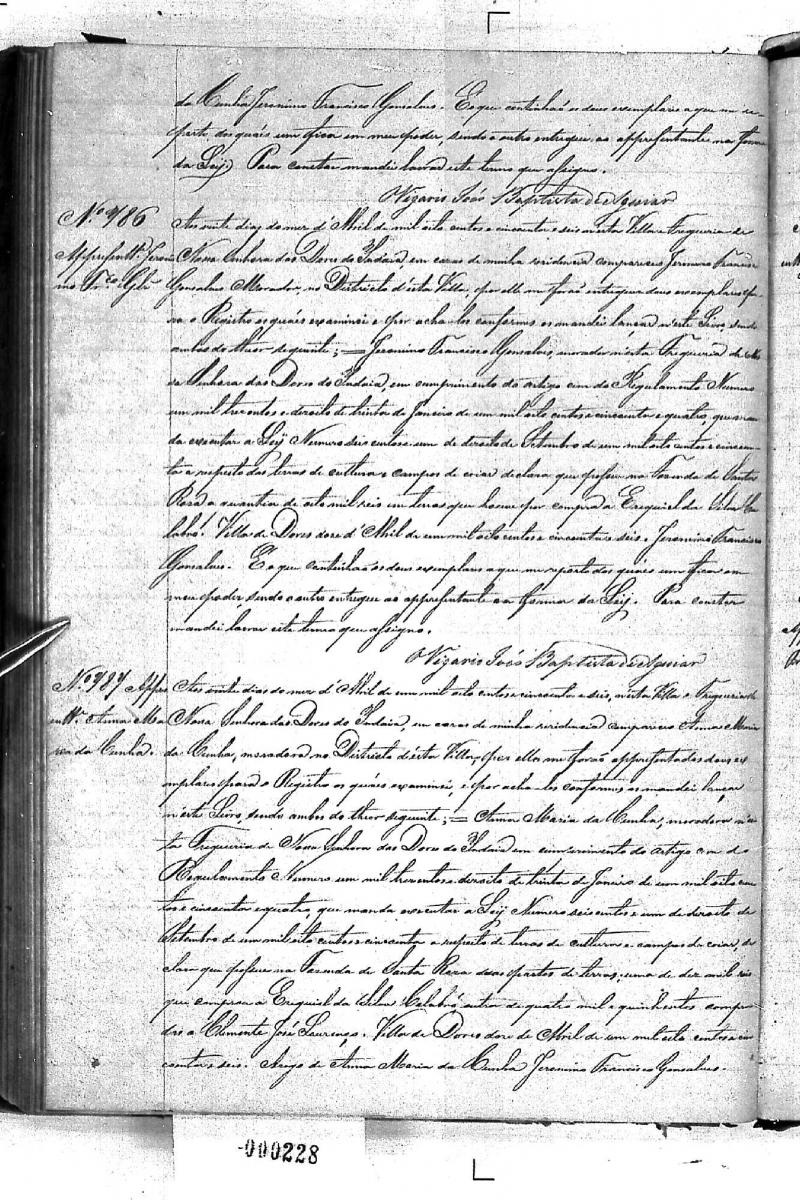 da Cunha Jeronimo Francisco Gonsalves. E o que continhaõ os dous exemplares a que me re-
porto dos quáes um fica em meu poder, sendo o outro entregue ao appresentante na forma
da Leÿ. Para constar mandei lavrar este termo que assigno.
O Vigario Joaõ Baptista de Aguiar
Nº 486
Appresentte Jeroni
mo Frco Glz
Aos vinte dias do mez d'Abril de mil oito centos e cincoenta e seis nesta Villa e Freguezia de
Nossa Senhora das Dores do Indaiá em casas de minha residencia compareceo Jeronimo Francisco
Gonsalves Morador no Districto d'esta Villa, e por elle me foraõ entregues dous exemplares pa-
ra o Registro os quáes examinei e por acha-los conformes os mandei lançar n'este Livro, sendo
ambos do theor seguinte; = Jeronimo Francisco Gonsalves, morador n'esta Freguezia de Nos
sa Senhora das Dores do Indaiá, em cumprimento do artigo cem do Regulamento Numero
um mil trezentos e dezoito de trinta de Janeiro de um mil oito centos e cincoenta e quatro, que man
da executar a Leÿ Numero seis centos e um de dezoito de Setembro de um mil oito centos e cincoen
ta a respeito das terras de cultura e campos de criar declara que possue na Fazenda de Santa
Roza a quantia de oito mil reis em terras que houve por compra a Ezequiel da Silva Ca
labró. Villa de Dores doze d'Abril de um mil oito centos e cincoenta e seis. Jeronimo Francisco
Gonsalves. E o que continhaõ os dous exemplares a que me reporto dos quáes um fica em
meu poder sendo o outro entregue ao appresentante na forma da Leÿ. Para constar
mandei lavrar este termo que assigno.
O Vigario Joaõ Baptista de Aguiar
Nº 487 Appre
sentte Anna Ma
ria da Cunha.
Aos vinte dias do mez d'Abril de um mil oito centos e cincoenta e seis, nesta Villa e Freguezia de
Nossa Senhora das Dores do Indaiá, em casas de minha residencia compareceo Anna Maria
da Cunha, moradora no Districto d'esta Villa, e por ella me foraõ appresentados dous ex
emplares para o Registro os quáes examinei, e por acha-los conformes os mandei lançar
n'este Livro, sendo ambos do theor seguinte; = Anna Maria da Cunha, moradora n'es
ta Freguezia de Nossa Senhora das Dores do Indaiá em cumprimento do artigo cem do
Regulamento Numero um mil trezentos e dezoito de trinta de Janeiro de um mil oito cen
tos e cincoenta e quatro, que manda executar a Leÿ Numero seis centos e um de dezoito de
Setembro de um mil oito centos e cincoenta a respeito de terras de culturas e campos de criar, de
clara que possue na Fazenda de Santa Roza duas partes de terras, uma de dez mil reis
que comprou a Ezequiel da Silva Calabró outra de quatro mil e quinhentos compra
dos a Clemente José Lourenço. Villa de Dores doze de Abril de um mil oito centos e cin
coenta e seis. Arogo de Anna Maria da Cunha Jeronimo Francisco Gonsalves.
-000228